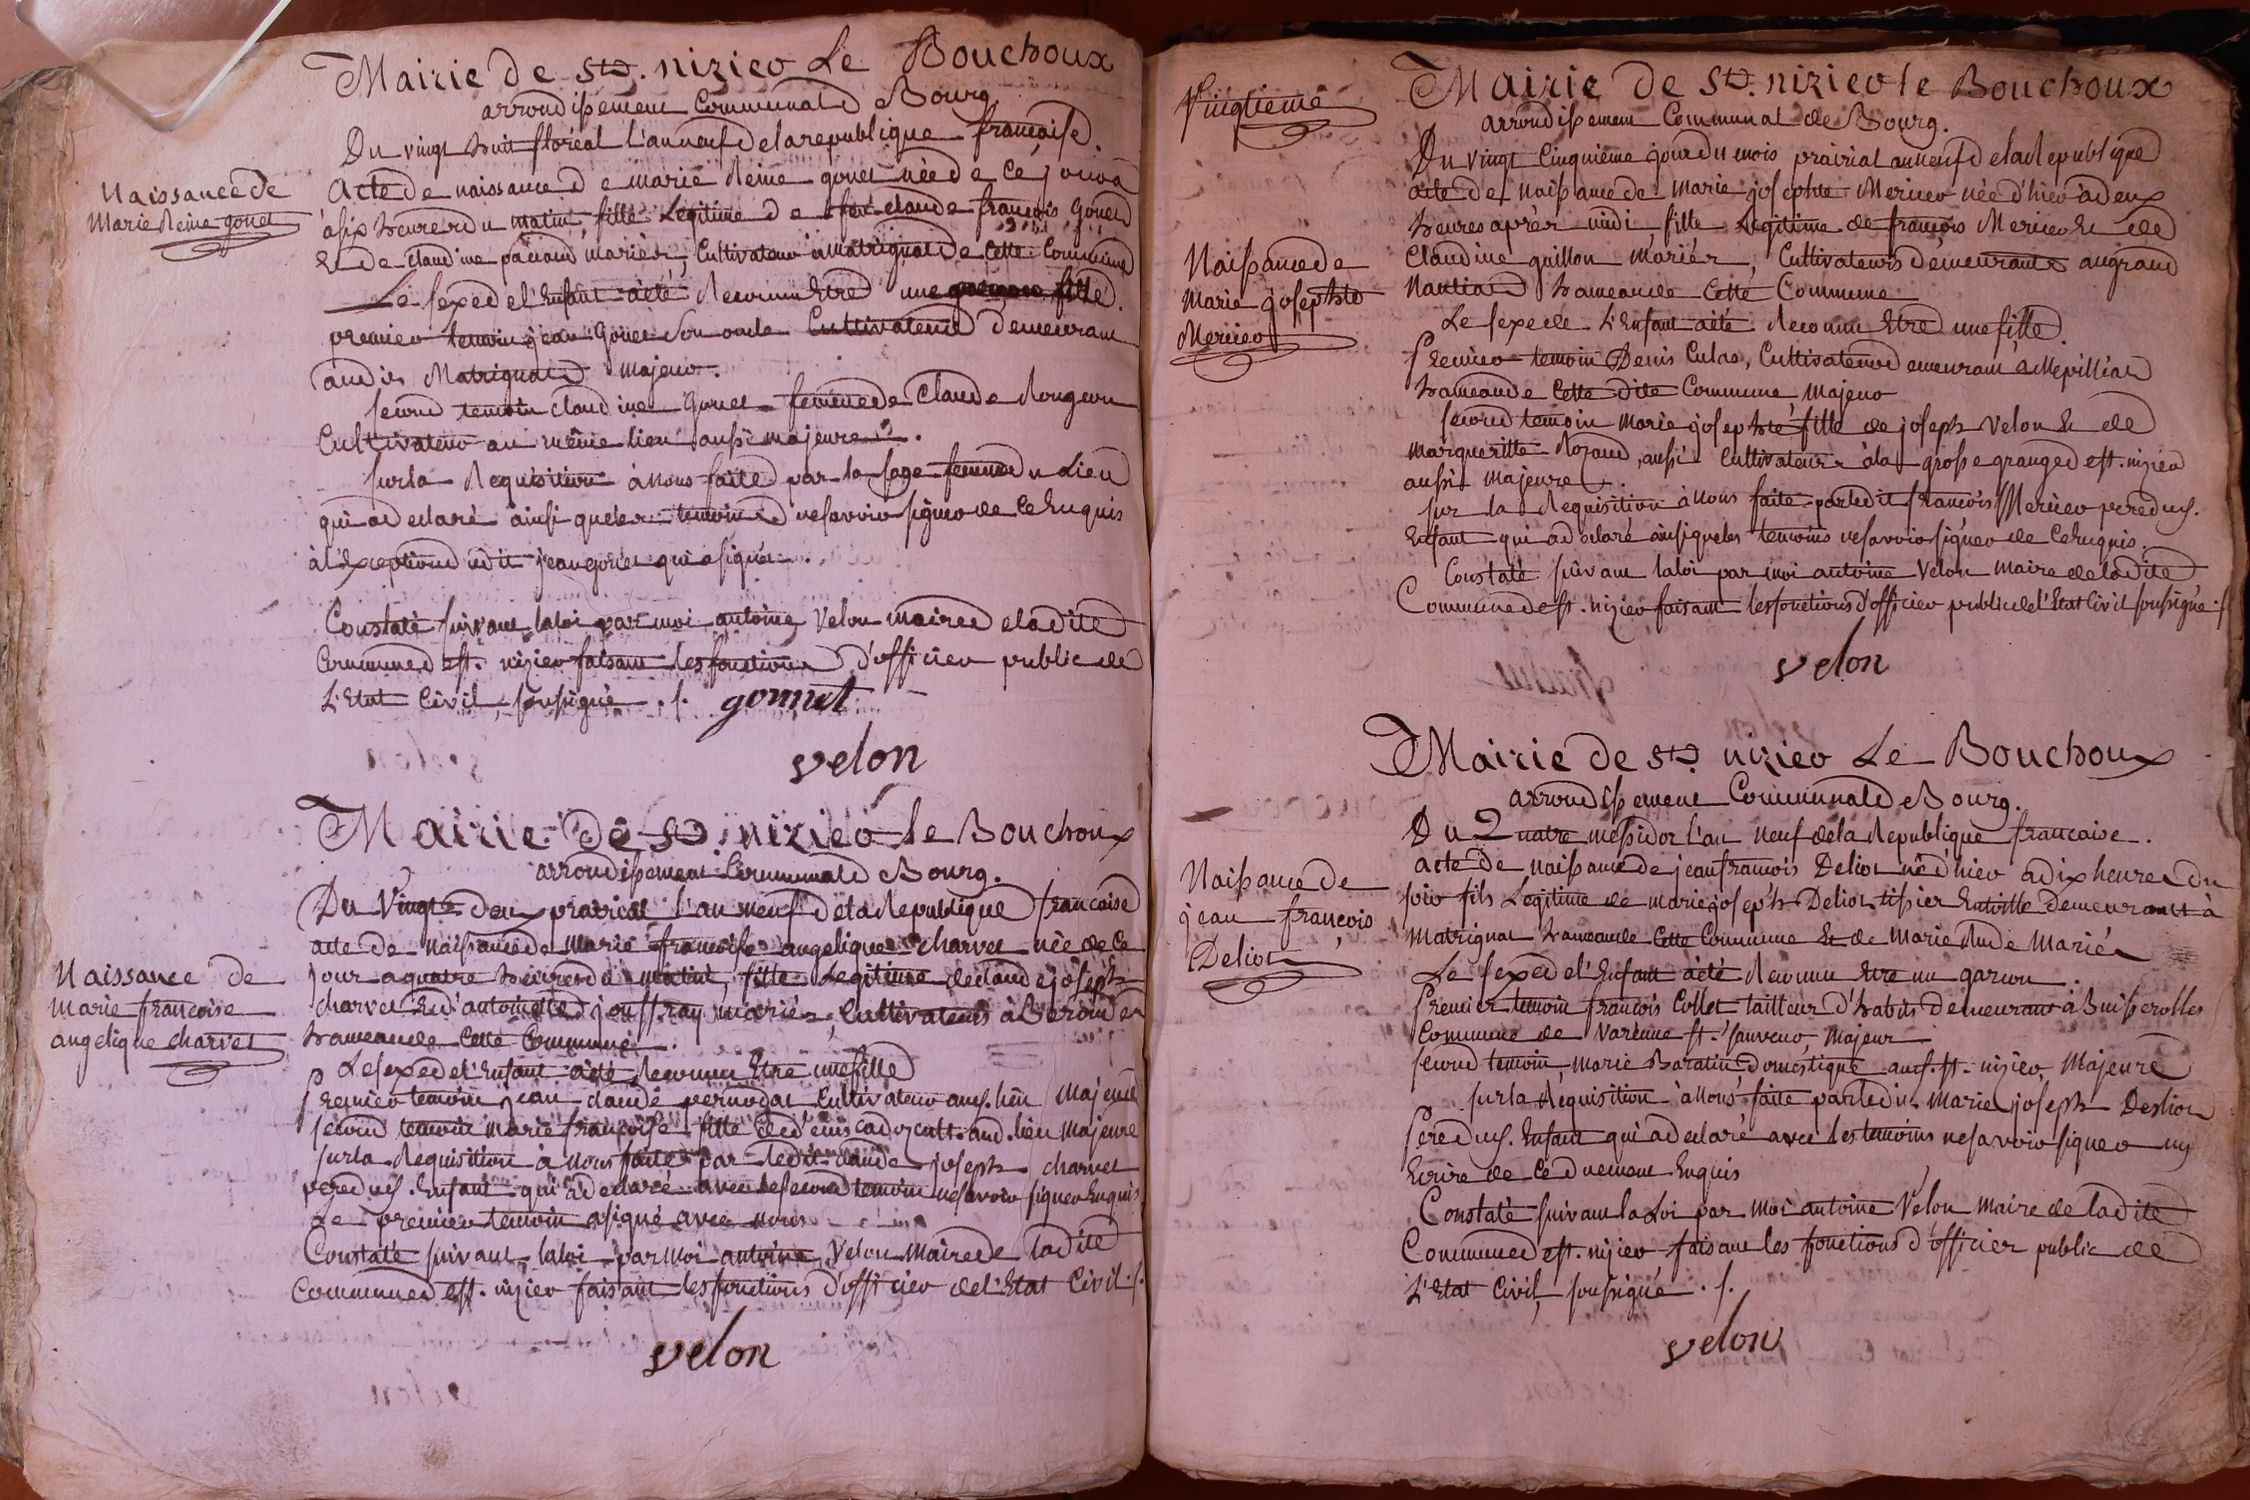 Mairie de St. nizier Le Bouchoux
arrondissement Communal de Bourg
Du vingt huit floréal l'an neuf de la republique française.
Naissance de
Marie Reine gonet
Acte de naissance de marie Reine gonet née de ce jour
à six heures du matin, fille Legitime de feu claude françois Gonet
Et de claudine pacoud mariés, Cultivateur à matrignat de cette Commune
Le sexe de l'Enfant à été Reconnu Etre une fille.
premier temoin jean Gonet son oncle Cultivateur demeurant
audit Matrignat majeur.
second temoin claudine Gonet femme de Claude Rongeon
Cultivateur au même lieu aussi majeure.
sur la Requisition à nous faite par la sage femme du Lieu
qui a declaré ainsi que les temoins ne savoir signer de ce Enquis
à l'Exception du dit jean gonet qui a signé.
Constaté suivant la loi par moi antoine Velon maire de la dite
Commune de st. nizier faisant les fonctions d'officier public de
L'Etat Civil, soussigné ./. gonnet
velon
Mairie de St. nizier le Bouchoux
arrondissement Communal de Bourg.
Du Vingt deux prairial l'an neuf de la Republique francaise
Naissance de
marie francoise
angelique charvet
acte de naissance de marie francoise angelique charvet née de ce
jour a quatre heures du matin, fille Legitime de claude joseph
charvet Et d'antoinette jouffray mariés, Cultivateurs à
hameau de cette Commune.
Le sexe de l'Enfant à été Reconnu Etre une fille
Premier temoin jean claude pernodat Cultivateur aud. lieu Majeur
second temoin marie françoise fille de denis cult. aud. lieu Majeure
sur la Requisition à nous faite par ledit claude joseph charvet
pere dud. Enfant qui a declaré avec le second temoin ne savoir signer Enquis
Le premier temoin a signé avec nous
Constaté suivant la loi par moi antoine Velon Maire de la dite
Commune de st. nizier faisant les fonctions d'officier de l'Etat Civil ./.
velon
Vingtieme
Mairie de St. nizier le Bouchoux
arrondissement Communal de Bourg.
Du vingt Cinquième jour du mois prairial an neuf de la Republique
Naissance de
Marie josephte
Mericer
acte de naissance de Marie josephte Mericer née d'hier à deux
heures après midi, fille Legitime de françois Mericer Et de
Claudine guillon mariés, Cultivateurs demeurants au grand
Nantiad hameau de cette Commune
Le sexe de L'Enfant à été Reconnu Etre une fille.
Premier temoin Denis Culas, Cultivateur demeurant à Mepilliat
hameau de Cette dite Commune, Majeur
second temoin Marie josephte fille de joseph Velon Et de
Margueritte Rozand, aussi Cultivateurs à la grosse grange de st. nizier
aussi majeure.
sur la Requisition à nous faite par ledit françois Mericer pere dud.
Enfant qui a declaré ainsi que les temoins ne savoir signer de Ce Enquis.
Constaté suivant la loi par moi antoine Velon maire de la dite
Commune de st. nizier faisant les fonctions d'officier public de l'Etat Civil soussigné ./.
velon
Mairie de St. nizier Le Bouchoux
arrondissement Communal de Bourg.
Du Quatre messidor l'an neuf de la Republique francaise.
Naissance de
jean françois
Deliot
acte de naissance de jean françois Deliot né d'hier à dix heures du
soir fils Legitime de marie joseph Deliot tissier Entoille demeurant à
Matrignat hameau de Cette Commune Et de Marie Rude Mariés
Le sexe de l'Enfant à été Reconnu Etre un garcon.
Premier temoin françois Collet tailleur d'habits Demeurant à Buisserolles
Commune de Varenne st. sauveur, Majeur
second temoin, Marie Baratin domestique aud. st. nizier, Majeure
sur la Requisition à nous faite par ledit Marie joseph Desliot
Pere dud. Enfant qui a declaré avec les temoins ne savoir signer ny
Ecrire de ce duement Enquis
Constaté suivant la Loi par moi antoine Velon Maire de la dite
Commune de st. nizier faisant les fonctions d'officier public de
L'Etat Civil, soussigné ./.
velon